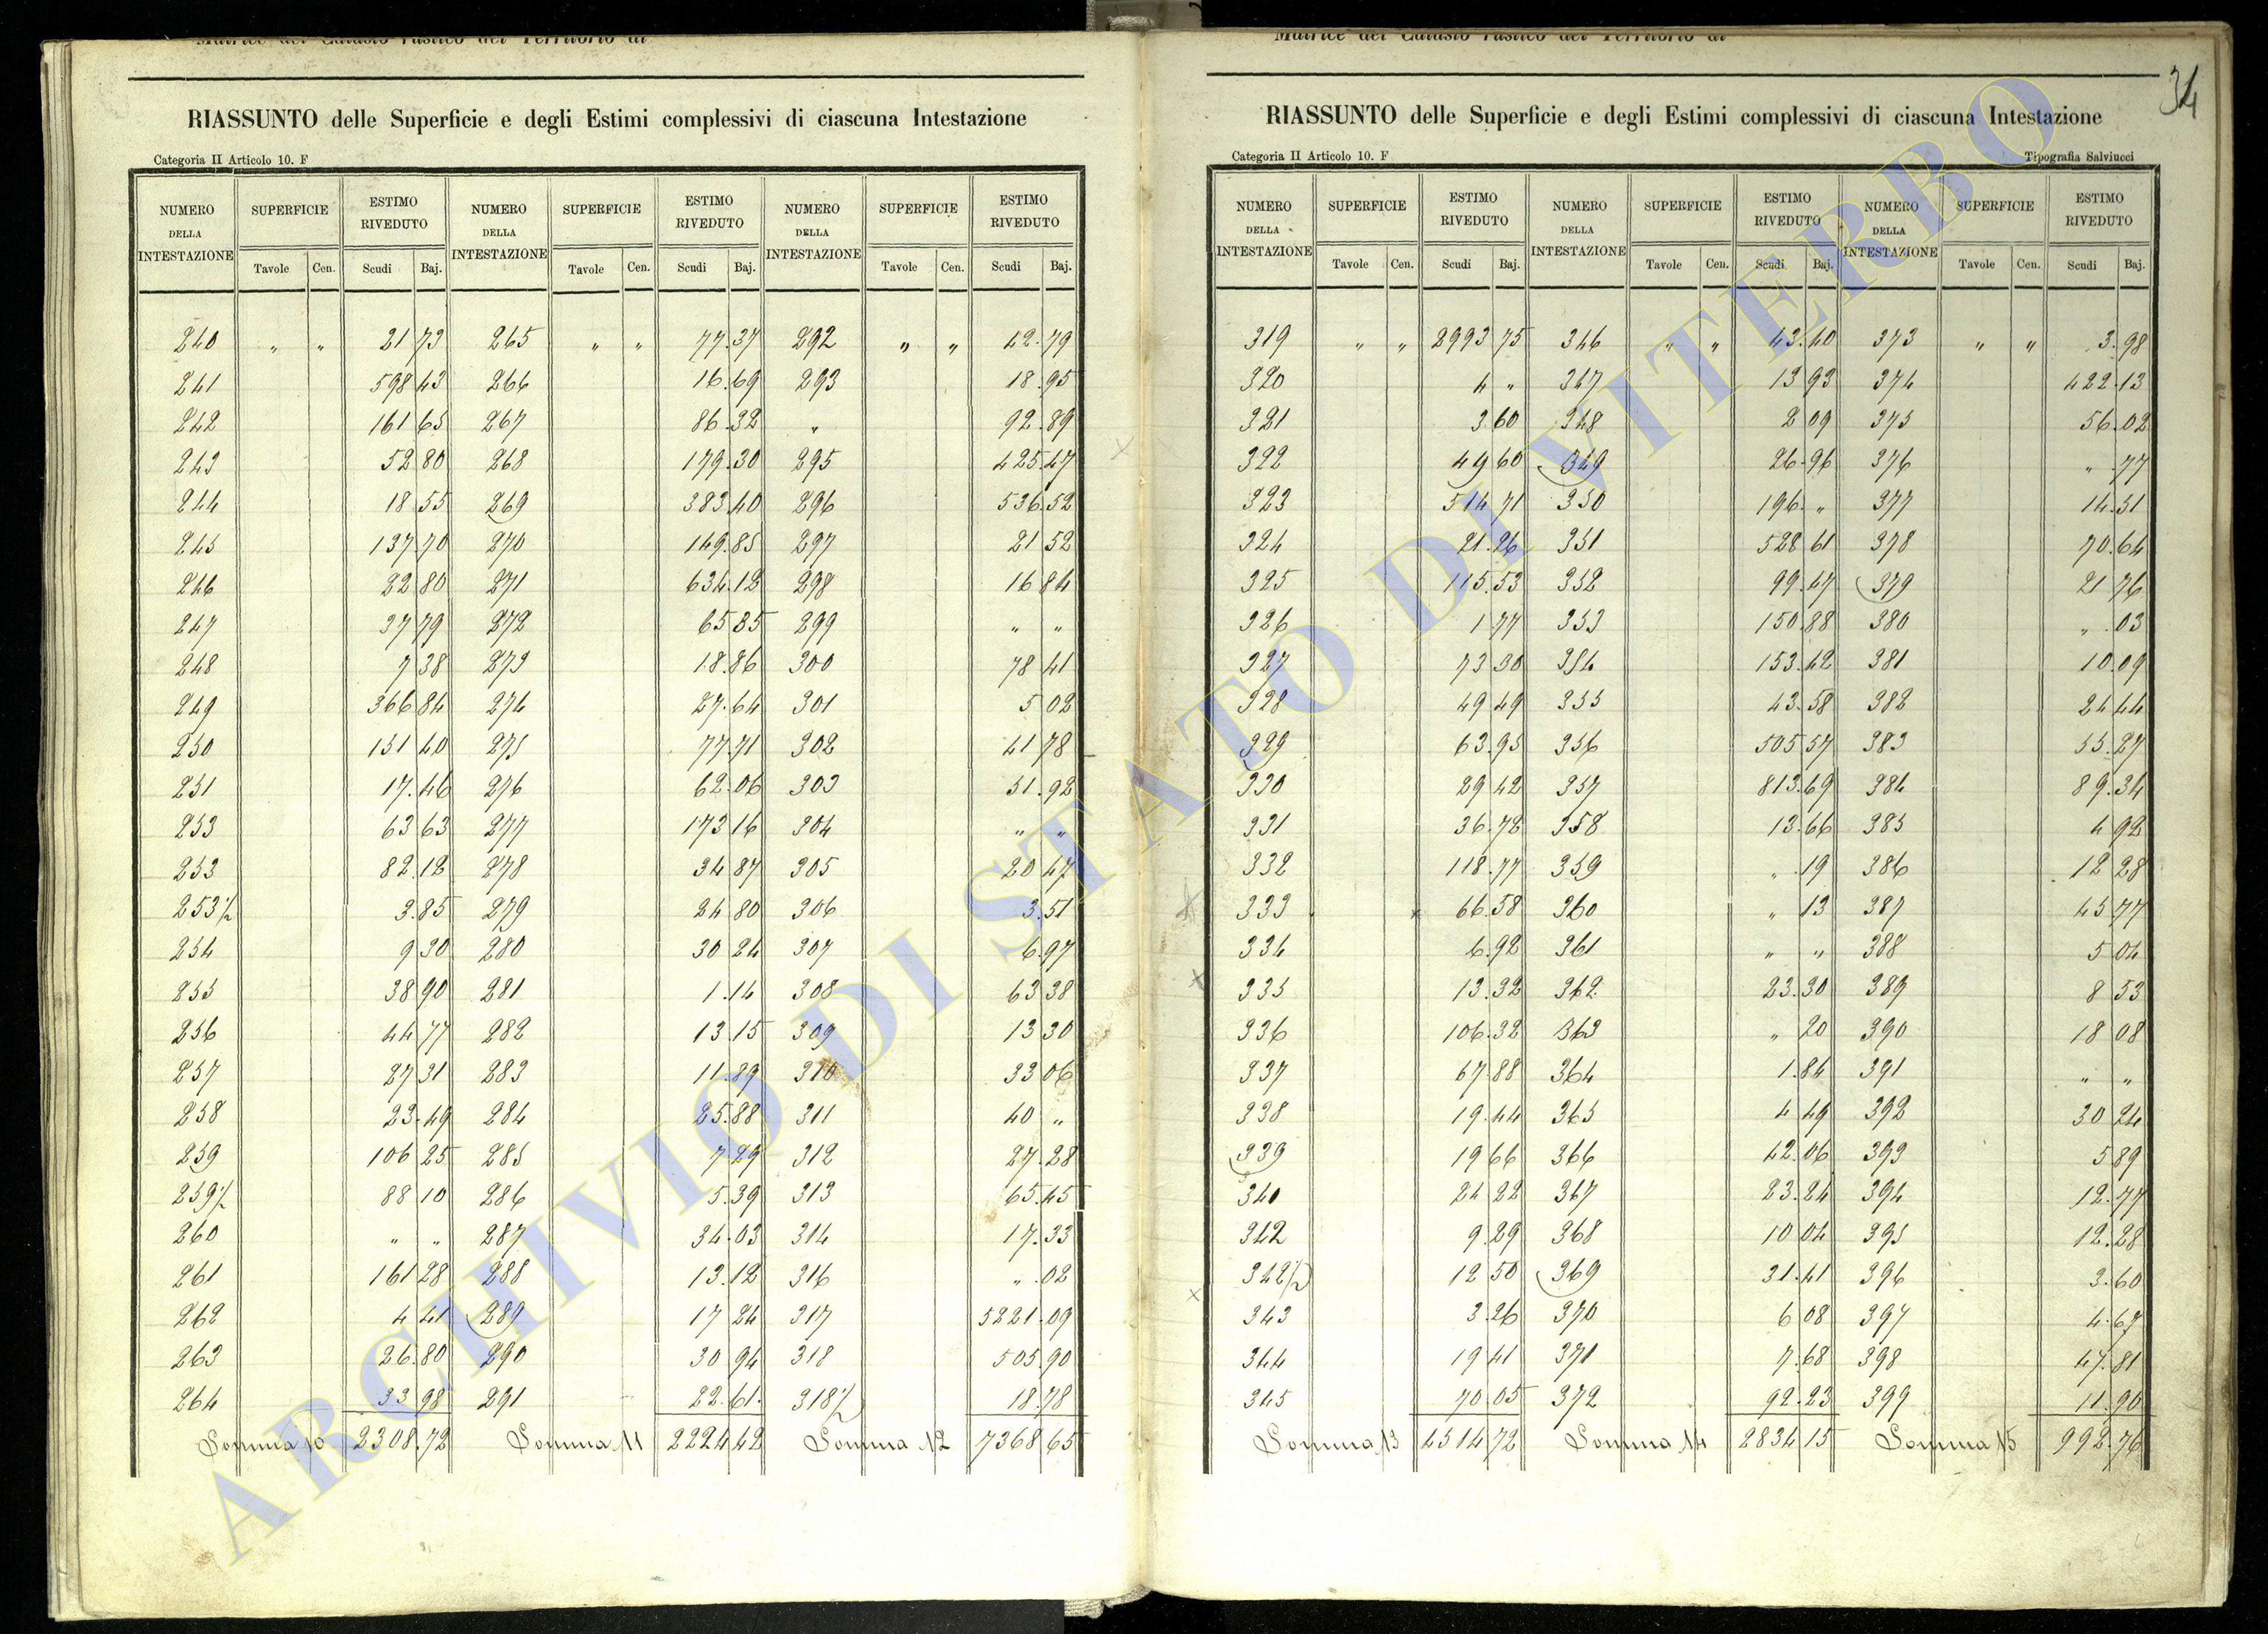 34
RIASSUNTO delle Superficie e degli Estimi complessivi di ciascuna Intestazione
Categoria II Articolo 10. F
NUMERO DELLA INTESTAZIONE SUPERFICIE ESTIMO RIVEDUTO NUMERO DELLA INTESTAZIONE SUPERFICIE ESTIMO RIVEDUTO NUMERO DELLA INTESTAZIONE SUPERFICIE ESTIMO RIVEDUTO
Tavole Cen. Scudi Baj. Tavole Cen. Scudi Baj. Tavole Cen. Scudi Baj.
240 „ „ 21 73 265 „ „ 77.37 292 „ „ 42.79
241 598 43 266 16.69 293 18.95
242 161 65 267 86.32 „ 92.89
243 52 80 268 179.30 295 425.47
244 18 55 269 383.40 296 536.52
245 137 70 270 149.85 297 21 52
246 22 80 271 634.12 298 16 84
247 37 79 272 65 85 299 „ „
248 7 38 273 18.86 300 78 41
249 366 84 274 27.64 301 5 02
250 151 40 275 77 71 302 41 78
251 17.46 276 62.06 303 51.92
253 63 63 277 173 16 304 „ „
253 82.12 278 34 87 305 20 47
253 1/2 3.85 279 24 80 306 3.51
254 9 30 280 30 24 307 6.97
255 38 90 281 1.14 308 63 38
256 44 77 282 13 15 309 13 30
257 27 31 283 11.89 310 33 06
258 23.49 284 25.88 311 40 „
259 106 25 285 7 29 312 27.28
259 1/2 88 10 286 5.39 313 65.45
260 „ „ 287 34.03 314 17.33
261 161 28 288 13.12 316 „ .02
262 4 41 289 17 24 317 5221.09
263 26.80 290 30 94 318 505.90
264 33 98 291 22.61. 318 1/2 18.78
Somma 10 2308.72 Somma 11 2224 42 Somma 12 7368 65
RIASSUNTO delle Superficie e degli Estimi complessivi di ciascuna Intestazione
Categoria II Articolo 10. F Tipografia Salviucci
NUMERO DELLA INTESTAZIONE SUPERFICIE ESTIMO RIVEDUTO NUMERO DELLA INTESTAZIONE SUPERFICIE ESTIMO RIVEDUTO NUMERO DELLA INTESTAZIONE SUPERFICIE ESTIMO RIVEDUTO
Tavole Cen. Scudi Baj. Tavole Cen. Scudi Baj. Tavole Cen. Scudi Baj.
319 „ „ 2993 75 346 „ „ 43.40 373 „ „ 3.98
320 4 „ 347 13 93 374 422.13
321 3 60 348 2 09 375 56.02
322 49 60 349 26.96 376 „ .77
323 514 71 350 196. „ 377 14.51
324 21.26 351 528 61 378 70.64
325 115.53 352 99.47 379 21 76
326 1 77 353 150.88 380 „ .03
327 73 30 354 153.42 381 10.09
328 49 49 355 43.58 382 24 44
329 63.95 356 505 57 383 55.27
330 29 42 357 813.69 384 89.34
331 36.78 358 13.66 385 4 92
332 118.77 359 „ .19 386 12 28
333 66.58 360 „ 13 387 45 77
334 6.92 361 „ „ 388 5 04
335 13.32 362 23.30 389 8 53
336 106.32 363 „ 20 390 18 08
337 67.88 364 1.84 391 „ „
338 19.44 365 4 49 392 30 24
339 19 66 366 42.06 393 5 89
340 24 22 367 23.24 394 12.77
342 9.29 368 10 04 395 12.28
342 1/2 12 50 369 31.41 396 3.60
343 3.26 370 6 08 397 4.67
344 19 41 371 7.68 398 47.81
345 70.05 372 92.23 399 11.90
Somma 13 4514 72 Somma 14 2834 15 Somma 15 992.76
ARCHIVIO DI STATO DI VITERBO